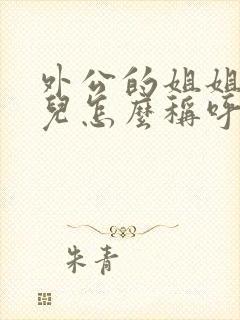 外公的姐姐
兒怎麼稱呼
朱青